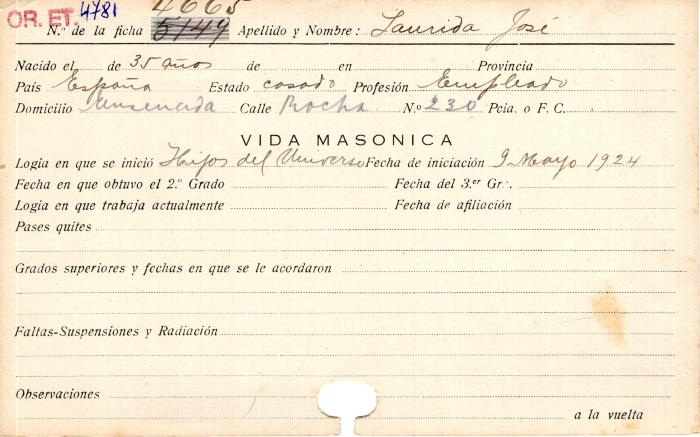 OR. ET. 4781 4665
N.º de la ficha 5149 Apellido y Nombre: Laurida José
Nacido el de 35 años de en Provincia
País España Estado casado Profesión Empleado
Domicilio Ensenada Calle Rocha N.º 230 Pcia. o F. C.
VIDA MASONICA
Logia en que se inició Hijos del Universo Fecha de iniciación 9 Mayo 1924
Fecha en que obtuvo el 2.º Grado Fecha del 3.er Gr∴
Logia en que trabaja actualmente Fecha de afiliación
Pases quites
Grados superiores y fechas en que se le acordaron
Faltas-Suspensiones y Radiación
Observaciones
a la vuelta